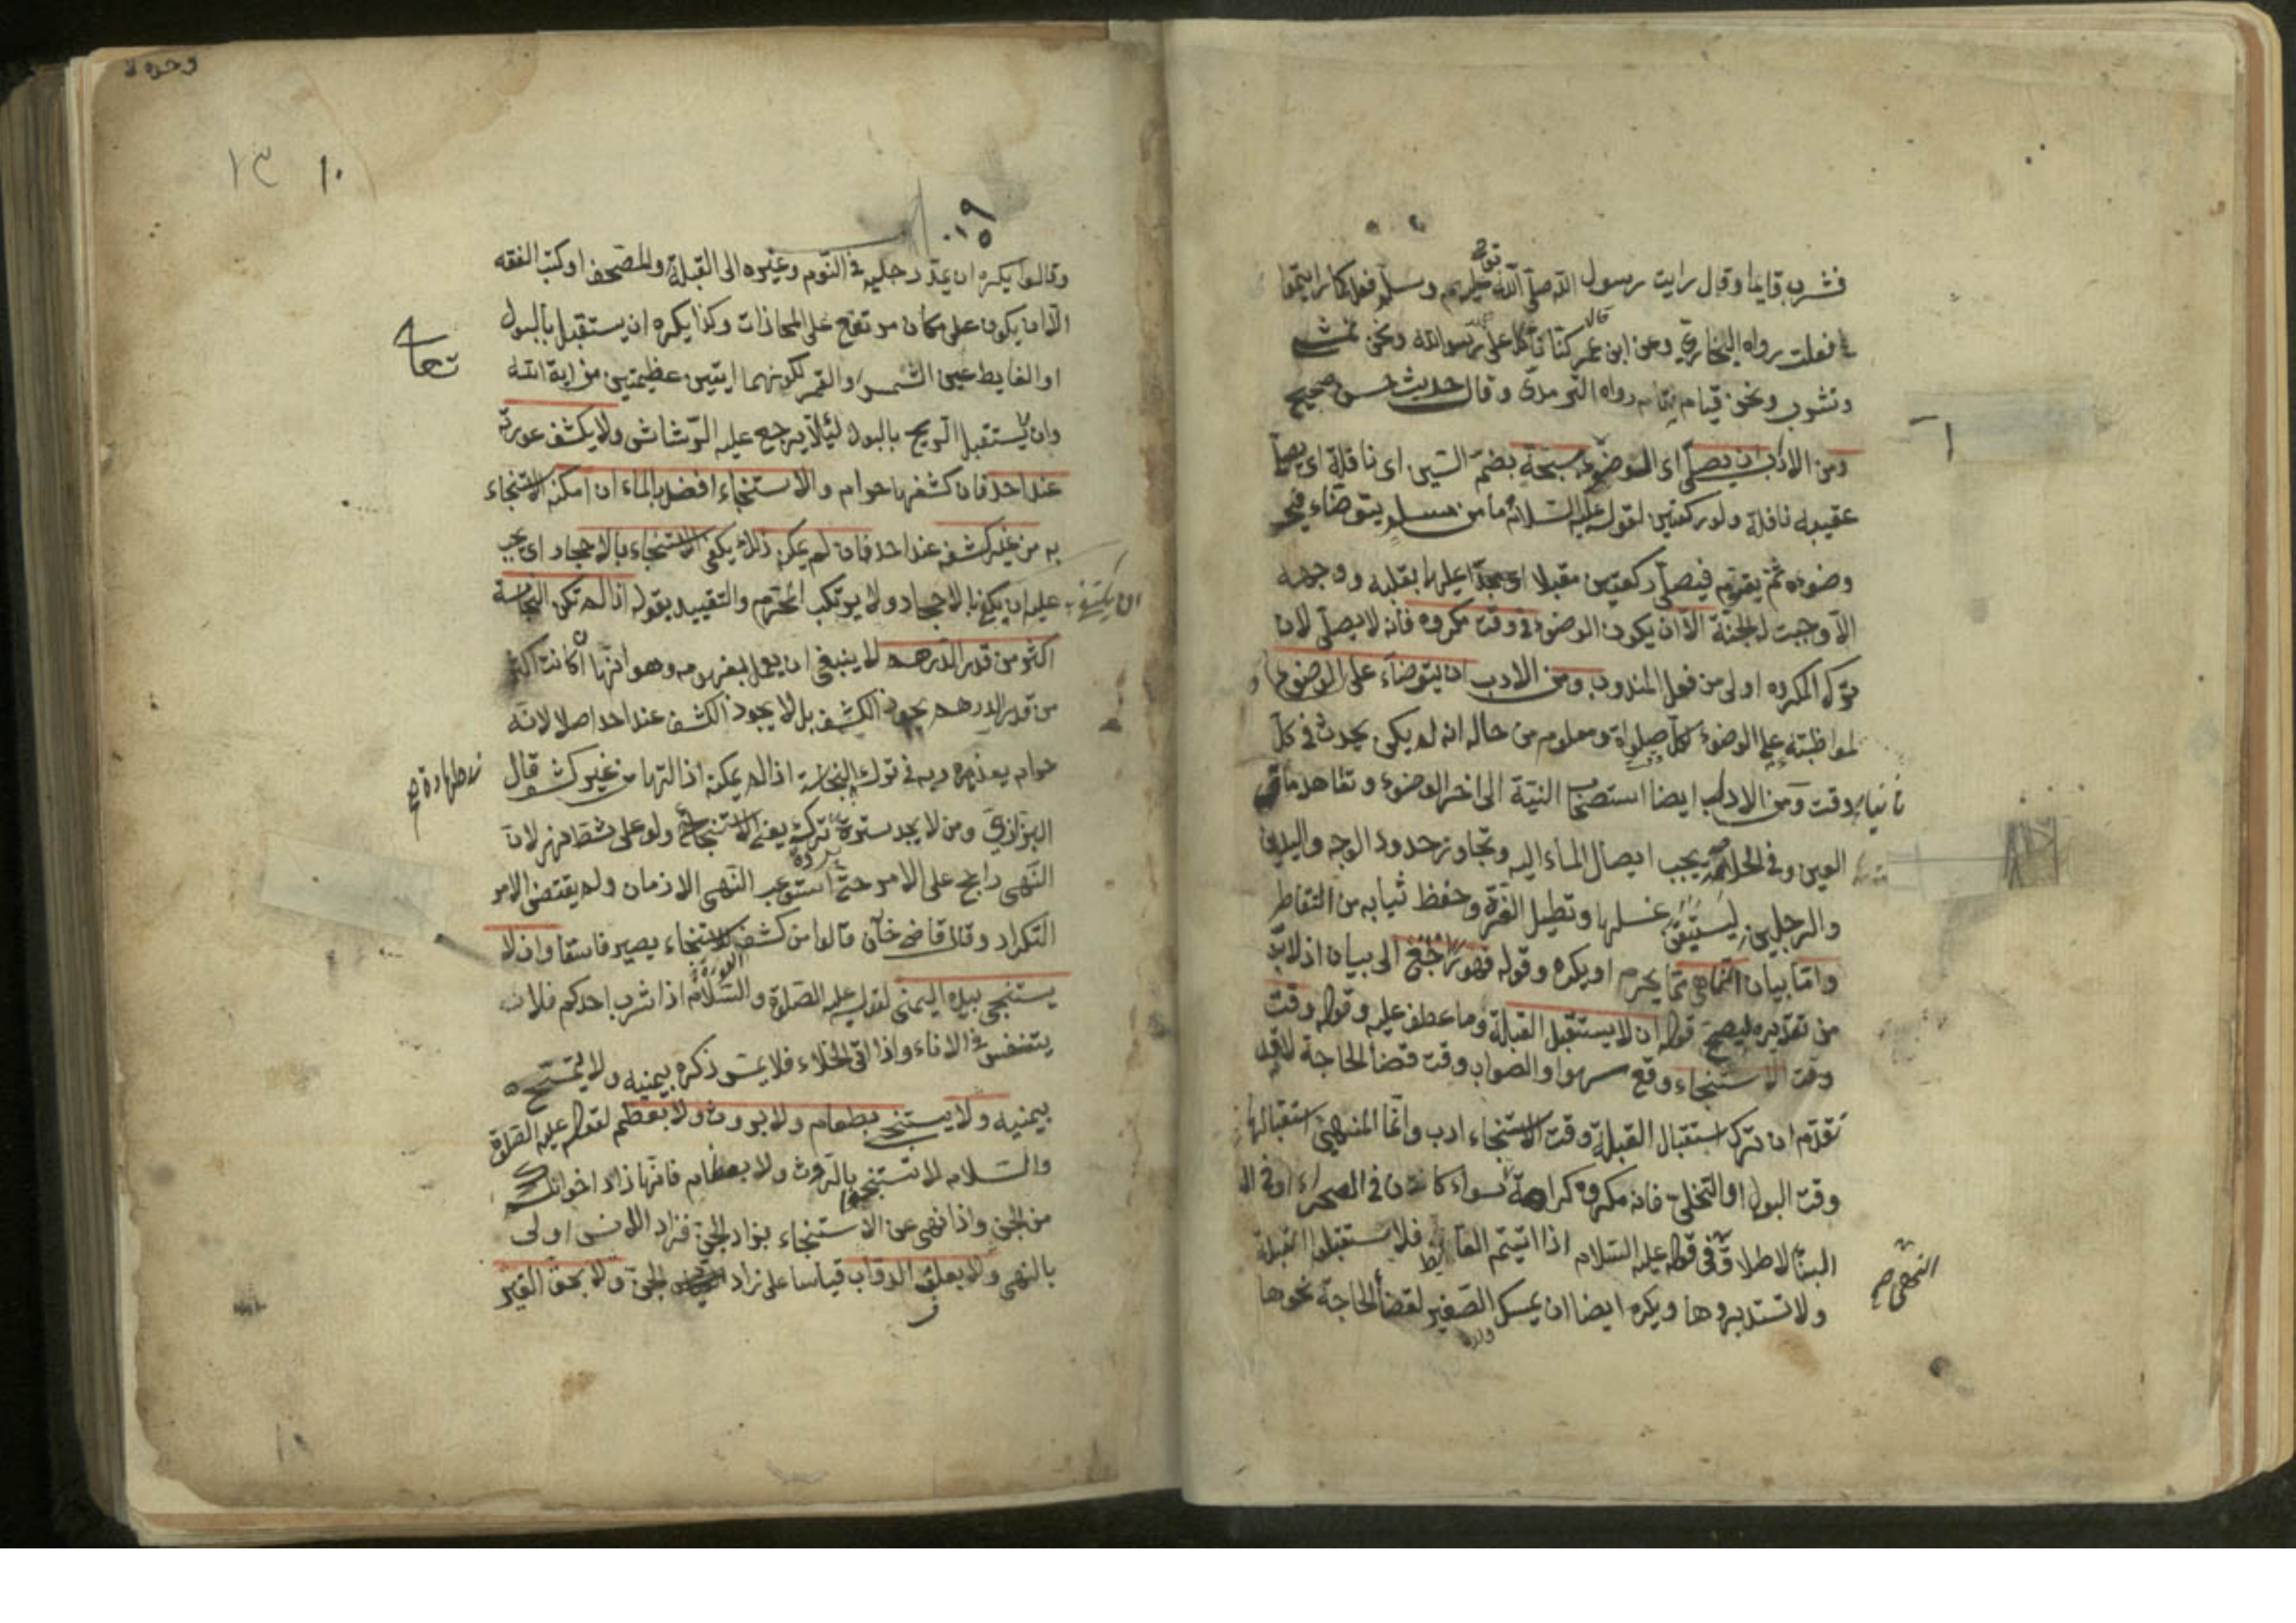 فشرب قايما وقال رايت رسول الله صلى الله عليه وسلم فعل كما رايتموا
فعلت رواه البخاري وعن ابن عمر قال كنا ناكل على عهد رسول الله ونحن نمشي
ونشرب ونحن قيام رواه الترمذي وقال حديث حسن صحيح
ومن الادب ان يصلى اى الوضوء سبحة بضم السين اى نافلة اى يصلى
عقيبه نافلة ولو ركعتين لقوله عليه السلام ما من مسلم يتوضاء فيحسن
وضوءه ثم يقوم فيصلى ركعتين مقبلا عليها بقلبه ووجهه
الا وجبت له الجنة الا ان يكون الوضوء في وقت مكروه فانه لا يصلى لان
ترك المكروه اولى من فعل المندوب ومن الادب ان يتوضاء على الوضوء
لمواظبته على الوضوء لكل صلواة ومعلوم من حاله انه لم يكن يحدث في كل
وقت ومن الادب ايضا استصحاب النية الى اخر الوضوء وتعاهد ماق
العين وفى الحلية يجب ايصال الماء اليه وتجاوز حدود الوجه واليدين
والرجلين ليستيقن غسلها وتطيل الغرة وحفظ ثيابه من التقاطر
واما بيان المناهى مما يحرم او يكره وقوله فهو راجع الى بيان اذ لا بد
من تقديره ليصح قوله ان لا يستقبل القبلة وما عطف عليه وقوله وقت
وقت الاستنجاء وقع سهوا والصواب وقت قضأ الحاجة لانه قد
تقدم ان ترك استقبال القبلة وقت الاستنجاء ادب وانما المنهى استقبالها
وقت البول او التخلى فانه مكروه كراهة سواء كان في الصحراء او في
البنا لاطلاق في قوله عليه السلام اذا اتيتم الغايط فلا تستقبلوا القبلة
النهى صح
ولا تستدبروها ويكره ايضا ان يمسك الصغير لقضأ الحاجة نحوها
ولده
١٣ ١٠
وقالوا يكره ان يمد رجليه فى النوم وغيره الى القبلة والمصحف او كتب الفقه
الا ان يكون على مكان مرتفع على المحاذات وكذا يكره ان يستقبل بالبول
او الغايط عين الشمس والقمر لكونهما ايتين عظيمتين من اية الله
تعالى
وان لا يستقبل الريح بالبول لئلا يرجع عليه الرشاش ولا يكشف عورته
عند احد فان كشفها حرام والاستنجاء افضل بالماء ان امكنه الاستنجاء
به من غير كشف عند احد فان لم يمكن ذلك يكفى الاستنجاء بالاحجار اى يجب
عليه ان يكتفى بالاحجار ولا يرتكب المحرم والتقييد بقوله اذا لم تكن النجاسة
اكثر من قدر الدرهم لا ينبغى ان يعمل بمفهومه وهو انها ان كانت اكثر
من قدر الدرهم يجوز الكشف بل لا يجوز الكشف عند احد اصلا لانه
حرام يعذر به فى ترك النجاسة اذا لم يمكنه ازالتها من غير كشف قال
البزازى ومن لا يجد سترة تركه يعنى الاستنجاء ولو على شط نهر لان
النهى راجح على الامر حتى استوعب النهى الازمان ولم يقتضى الامر
التكرار وقال قاضى خان قالوا من كشف للاستنجاء يصير فاسقا وان لا
العورة
يستنجى بيده اليمنى لقوله عليه الصلوة والسلام اذا شرب احدكم فلا
يتنفس فى الاناء واذا اتى الخلاء فلا يمس ذكره بيمينه ولا يتمسح
بيمنيه ولا يستنجى بطعام ولا بروث ولا بعظم لقوله عليه الصلوة
والسلام لا تستنجوا بالروث ولا بعظام فانها زاد اخوانكم
من الجن واذا نهى عن الاستنجاء بزاد الجن فزاد الانس اولى
بالنهى ولا بعلف الدواب قياسا على زاد الجن ولا بحق الغير